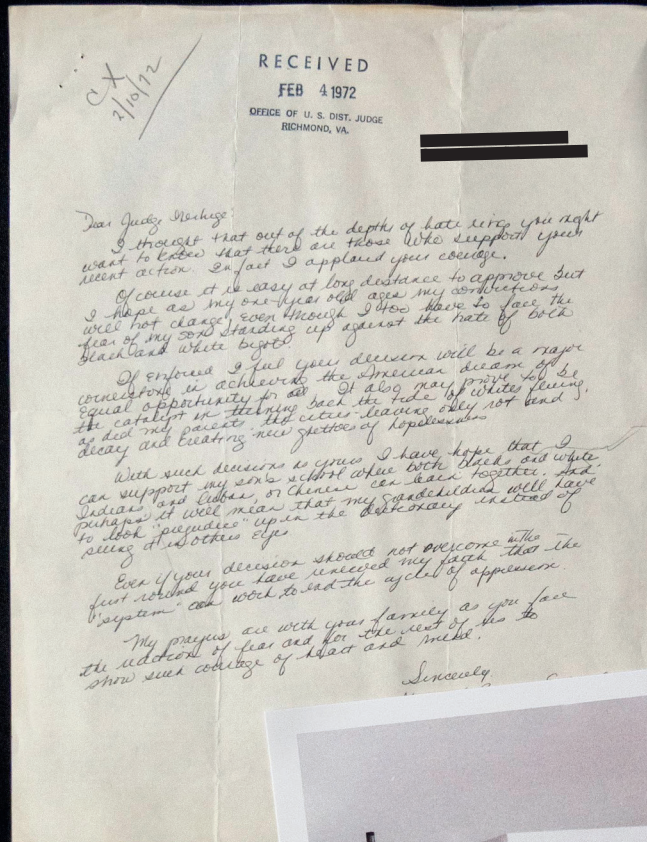 CX
2/10/72
RECEIVED
FEB 4 1972
OFFICE OF U. S. DIST. JUDGE
RICHMOND, VA.
Dear Judge Merhige:
I thought that out of the depths of hate ring you might
want to know that there are those who support your
recent action. In fact I applaud your courage.
Of course it is easy at long distance to approve but
I hope as my one-year old ages my convictions
will not change, even though I too have to face the
fear of my son standing up against the hate of both
black and white bigots.
If enforced I feel your decision will be a major
cornerstone in achieving the American dream of
equal opportunity for all. It also may prove to be
the catalyst in turning back the tide of whites fleeing,
as did my parents, the cities-leaving only rot and
decay and creating new ghettoes of hopelessness
With such decisions as yours I have hope that I
can support my son's school where both blacks and white
Indians and Cuban, or Chinese can learn together. And
perhaps it will mean that my grandchildren will have
to look "prejudice" up in the dictionary instead of
seeing it in others eyes
Even if your decision should not overcome in the
first round you have renewed my faith that the
"system" can work to end the cycles of oppression.
My prayers are with your family as you face
the reactions of fear and for the rest of us to
show such courage of heart and mind.
Sincerely